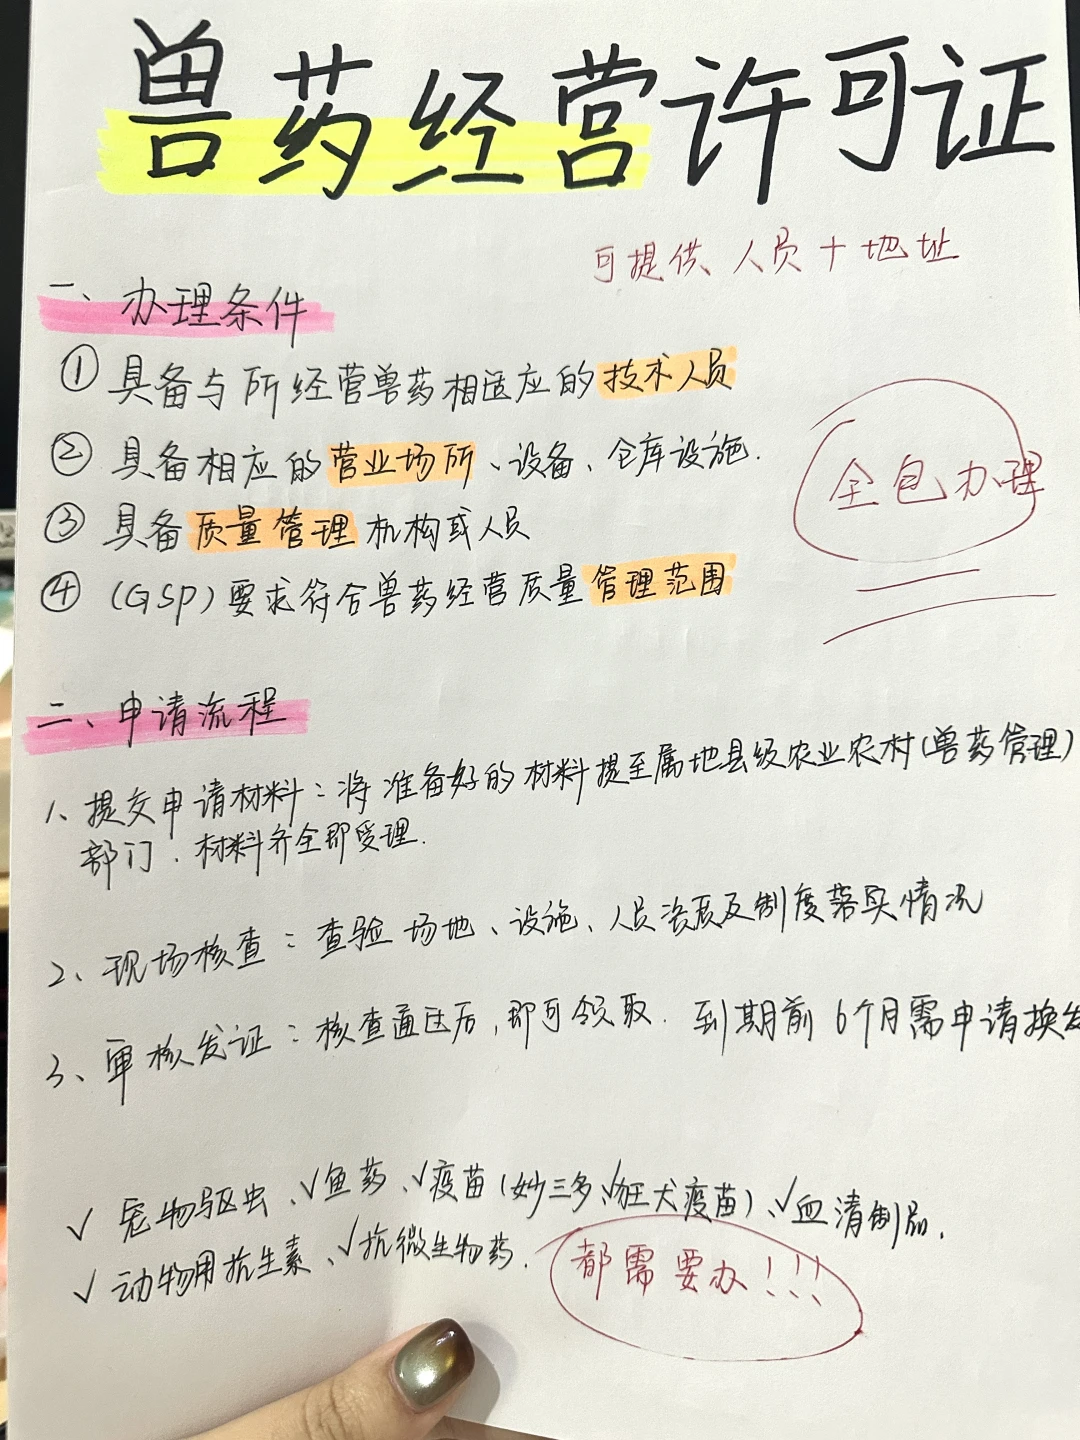 兽药经营许可证
可提供人员+地址
一、办理条件
① 具备与所经营兽药相适应的技术人员
② 具备相应的营业场所、设备、仓库设施.
全包办理
③ 具备质量管理机构或人员
④ (GSP)要求符合兽药经营质量管理范围
二、申请流程
1、提交申请材料：将准备好的材料提至属地县级农业农村(兽药管理)
部门.材料齐全即受理.
2、现场核查：查验场地、设施、人员资质及制度落实情况
3、审核发证：核查通过后,即可领取.到期前6个月需申请换发
√ 宠物驱虫、√鱼药、√疫苗(妙三多、√狂犬疫苗)、√血清制品.
√ 动物用抗生素、√抗微生物药.
都需要办!!!